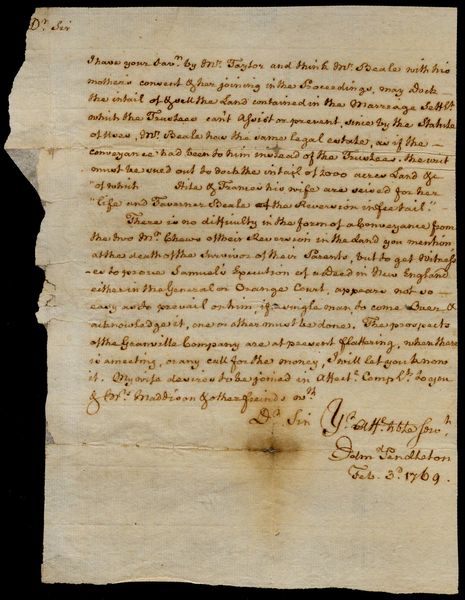 Dr. Sir
I have your favr. by Mr. Taylor and think Mr. Beale with his
mother's consent & her joining in the Proceedings, may Dock
the intail of & sell the Land contained in the Marreage Settlt.
which the Trustees can't Assist or prevent, since by the Statute
of Uses, Mr. Beale has the same legal estate, as if the
conveyance had been to him instead of the Trustees. the writ
must be sued out to dock the intail of 1000 acres Land &c
"of which Hite & Frances his wife are seised for her
"life and Taverner Beale of the Reversion in fee tail."
There is no difficulty in the form of a Conveyance from
the two Mr. Chews of their Reversion in the Land you mention
at the death of the Survivor of their Parents, but to get Witness
-es to prove Samuel's Execution of a Deed in New England
either in the General or Orange Court, appears not so
easy as to prevail on him, if a single man to come Over &
acknowledge it, one or other must be done. The prospects
of the Granville Company are at present flattering, when there
is a meeting, or any call for the money, I will let you know
it. My wife desires to be joined in Affecte. Complts. to you
& Mrs. Maddison & other friends wth.
Dr. Sir
Yr. Affe. hble Servt.
Edmd. Pendleton
Feb. 3d. 1769.